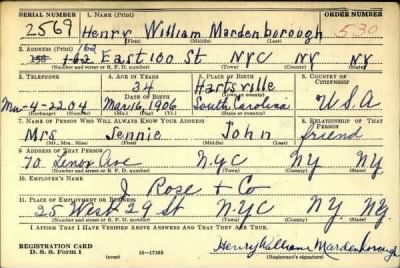 SERIAL NUMBER 1. NAME (Print) ORDER NUMBER
2569 Henry William Mardenborough 530
(First) (Middle) (Last)
2. ADDRESS (Print) 162
158 162 East 100 St. NYC NY NY
(Number and street or R. F. D. number) (Town) (County) (State)
3. TELEPHONE 4. AGE IN YEARS 5. PLACE OF BIRTH 6. COUNTRY OF CITIZENSHIP
34 Hartsville
DATE OF BIRTH (Town or county)
Mu-4-2204 Mar 16, 1906 South Carolina U.S.A
(Exchange) (Number) (Mo.) (Day) (Yr.) (State or country)
7. NAME OF PERSON WHO WILL ALWAYS KNOW YOUR ADDRESS 8. RELATIONSHIP OF THAT PERSON
Mrs Jennie John friend
(Mr., Mrs., Miss) (First) (Middle) (Last)
9. ADDRESS OF THAT PERSON
70 Lenox Ave N.Y.C NY NY
(Number and street or R. F. D. number) (Town) (County) (State)
10. EMPLOYER'S NAME
J Rose + Co
11. PLACE OF EMPLOYMENT OR BUSINESS
25 West 29 St N.Y.C NY. NY.
(Number and street or R. F. D. number) (Town) (County) (State)
I AFFIRM THAT I HAVE VERIFIED ABOVE ANSWERS AND THAT THEY ARE TRUE.
REGISTRATION CARD
D. S. S. Form 1 (over) 16-17105 Henry William Mardenborough
(Registrant's signature)